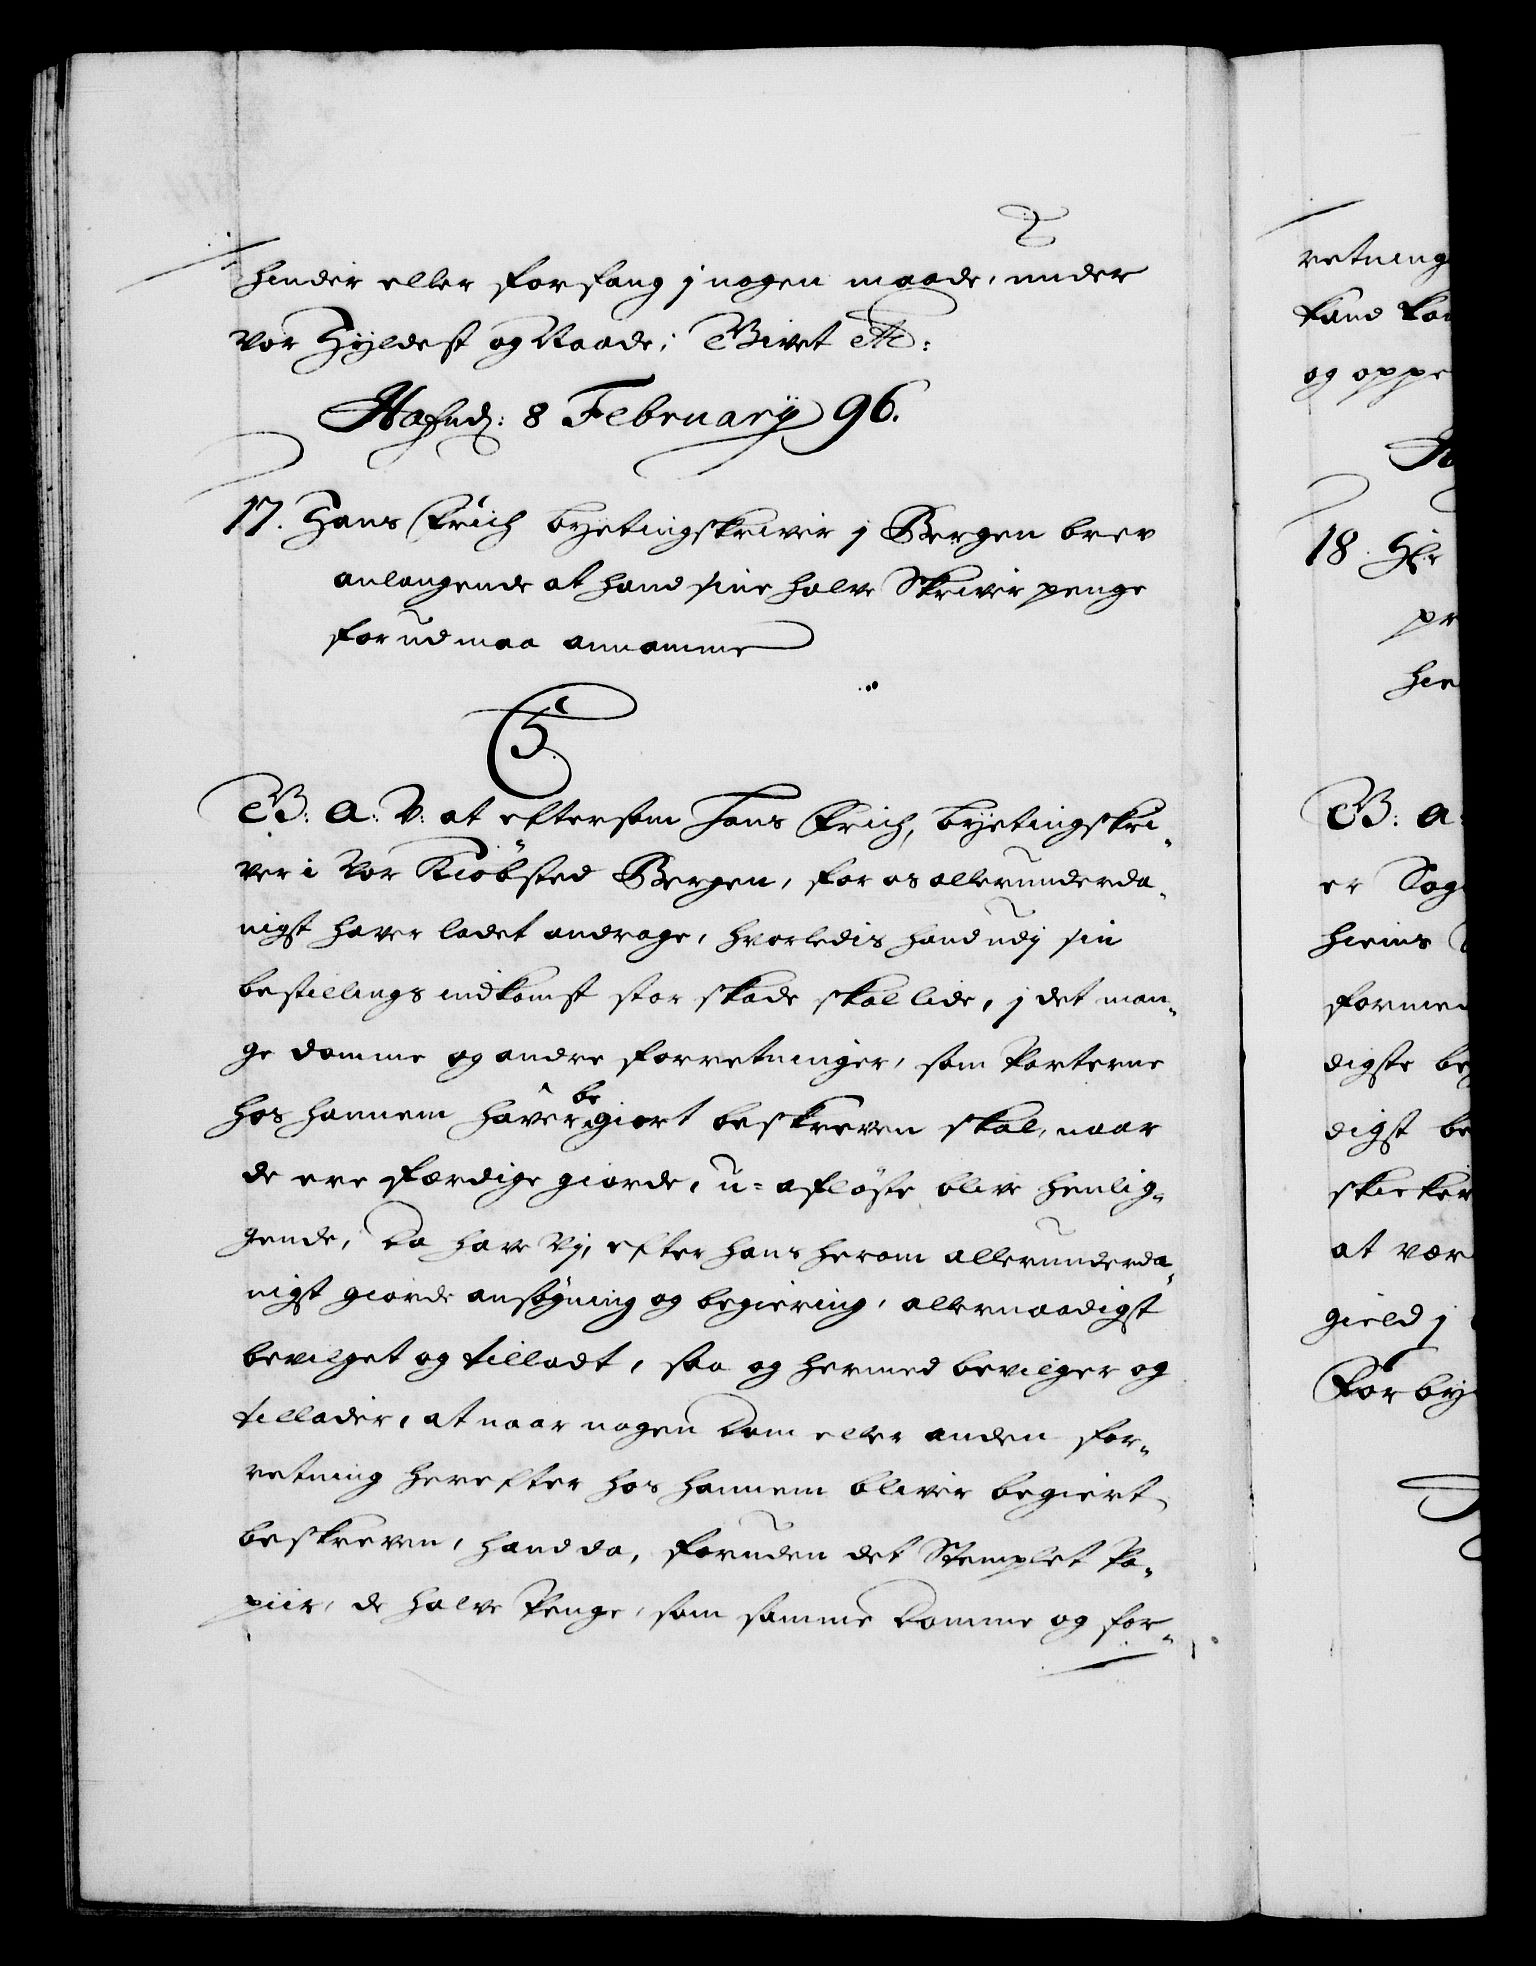 hinder eller forfang j nogen maade, under
vor Hyldest og Naade; Givet etc:
Hafnd: 8 Februarij 96.
17. Hans Frich byetingskriver j Bergen brev
anlangende at hand sine halve Skriver penge
forud maa annamme
C5.
G: A: V: at eftersom Hans Frich, byetingskri-
ver i vor Kiöbsted Bergen, for os allerunderda-
nigst haver ladet andrage, hvorledis hand udj sin
bestillings indkomst stor skade skal lide, j det man-
ge domme og andre forretninger, som Parterne
hos hannem haver begiert beskreven skal, naar
de ere færdige giorde, u-afløste blive henlig-
gende, Da have Vj, efter hans herom allerunderda-
nigst giorde ansøgning og begiering, allernaadigst
bevilget og tilladt, saa og hermed bevilger og
tillader, at naar nogen Dom eller anden for-
retning herefter hos hannem bliver begiert
beskreven, hand da, foruden det Stemplet Pa-
piir, de halve Penge, som samme Domme og for-
retning
og oppe
18.
G: a:
er
formed
digste be
digst be
skicker
at vær
gield j